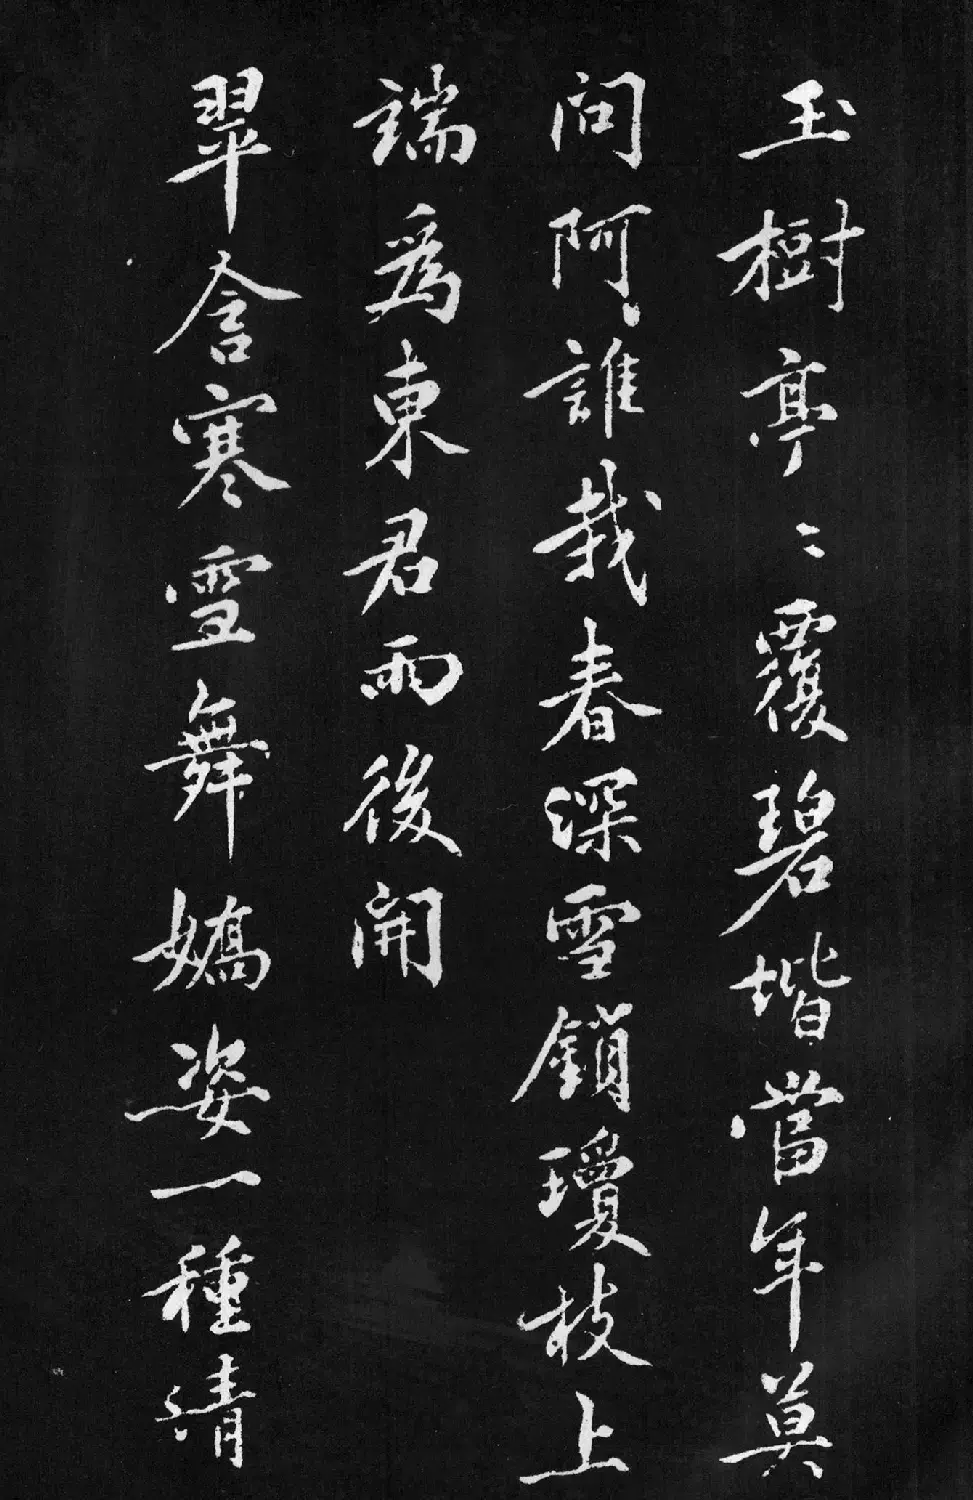 玉樹亭〻覆碧堦當年莫
問阿誰栽春深雪鎖瓊枝上
端為東君雨後開
翠含寒雪舞嬌姿一種清